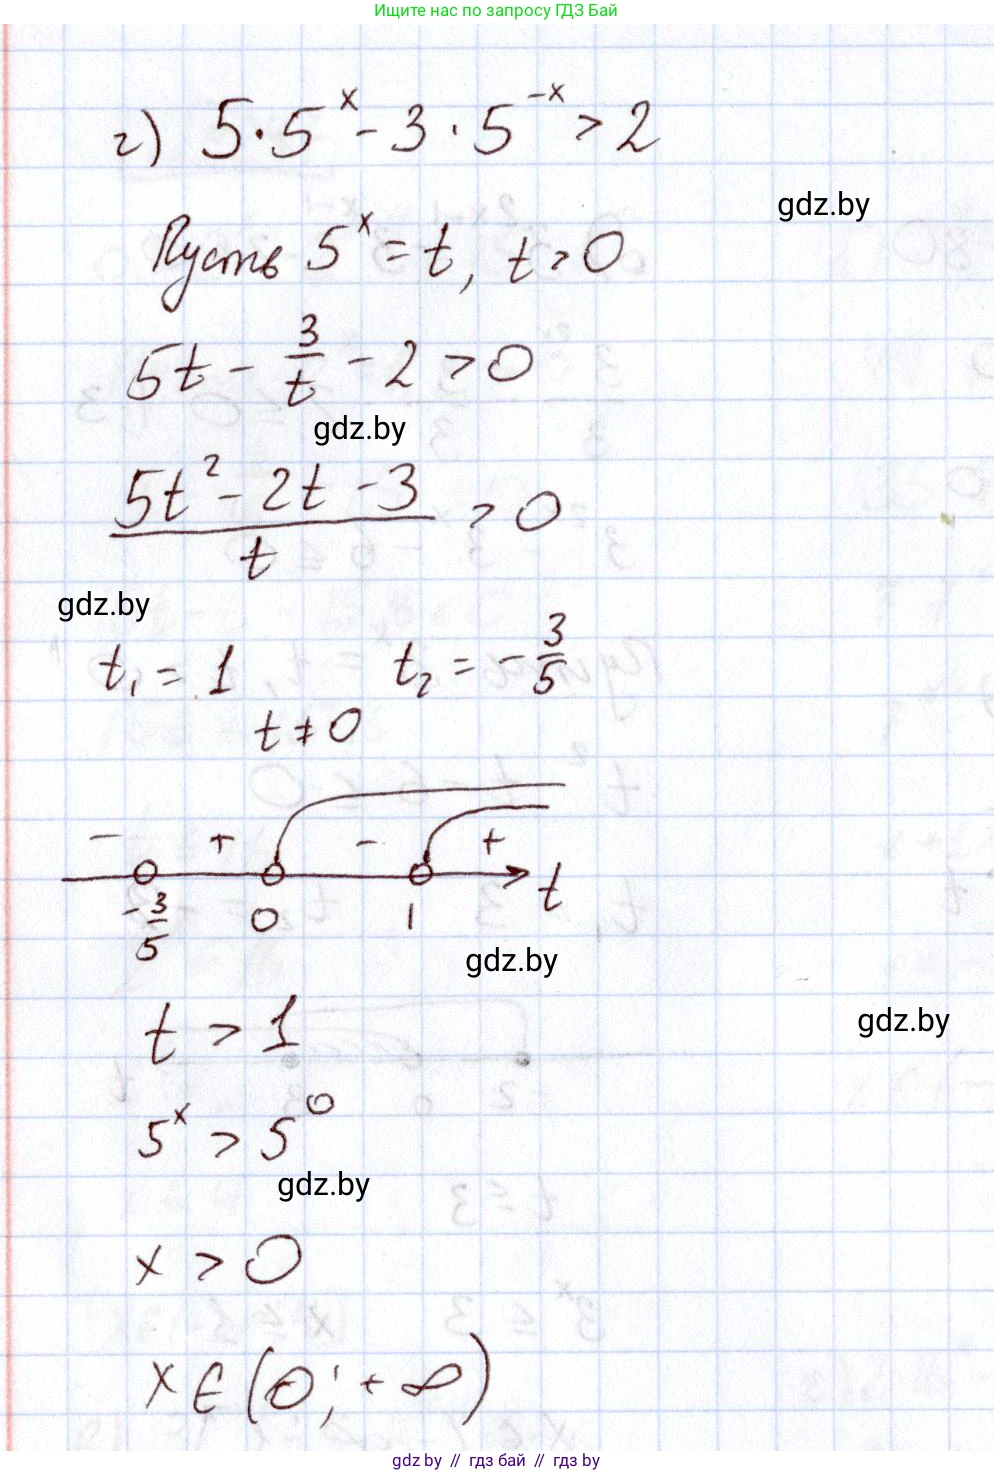 Ищите нас по запросу ГДЗ Бай
г) 5·5^x - 3·5^-x > 2
gdz.by
Пусть 5^x = t, t > 0
5t - 3/t - 2 > 0
gdz.by
(5t² - 2t - 3)/t > 0
gdz.by
t₁ = 1 t₂ = -3/5
t ≠ 0
- + - +
-3/5 0 1 t
gdz.by
t > 1
gdz.by
5^x > 5^0
gdz.by
x > 0
x ∈ (0; +∞)
gdz.by // гдз бай // гдз by